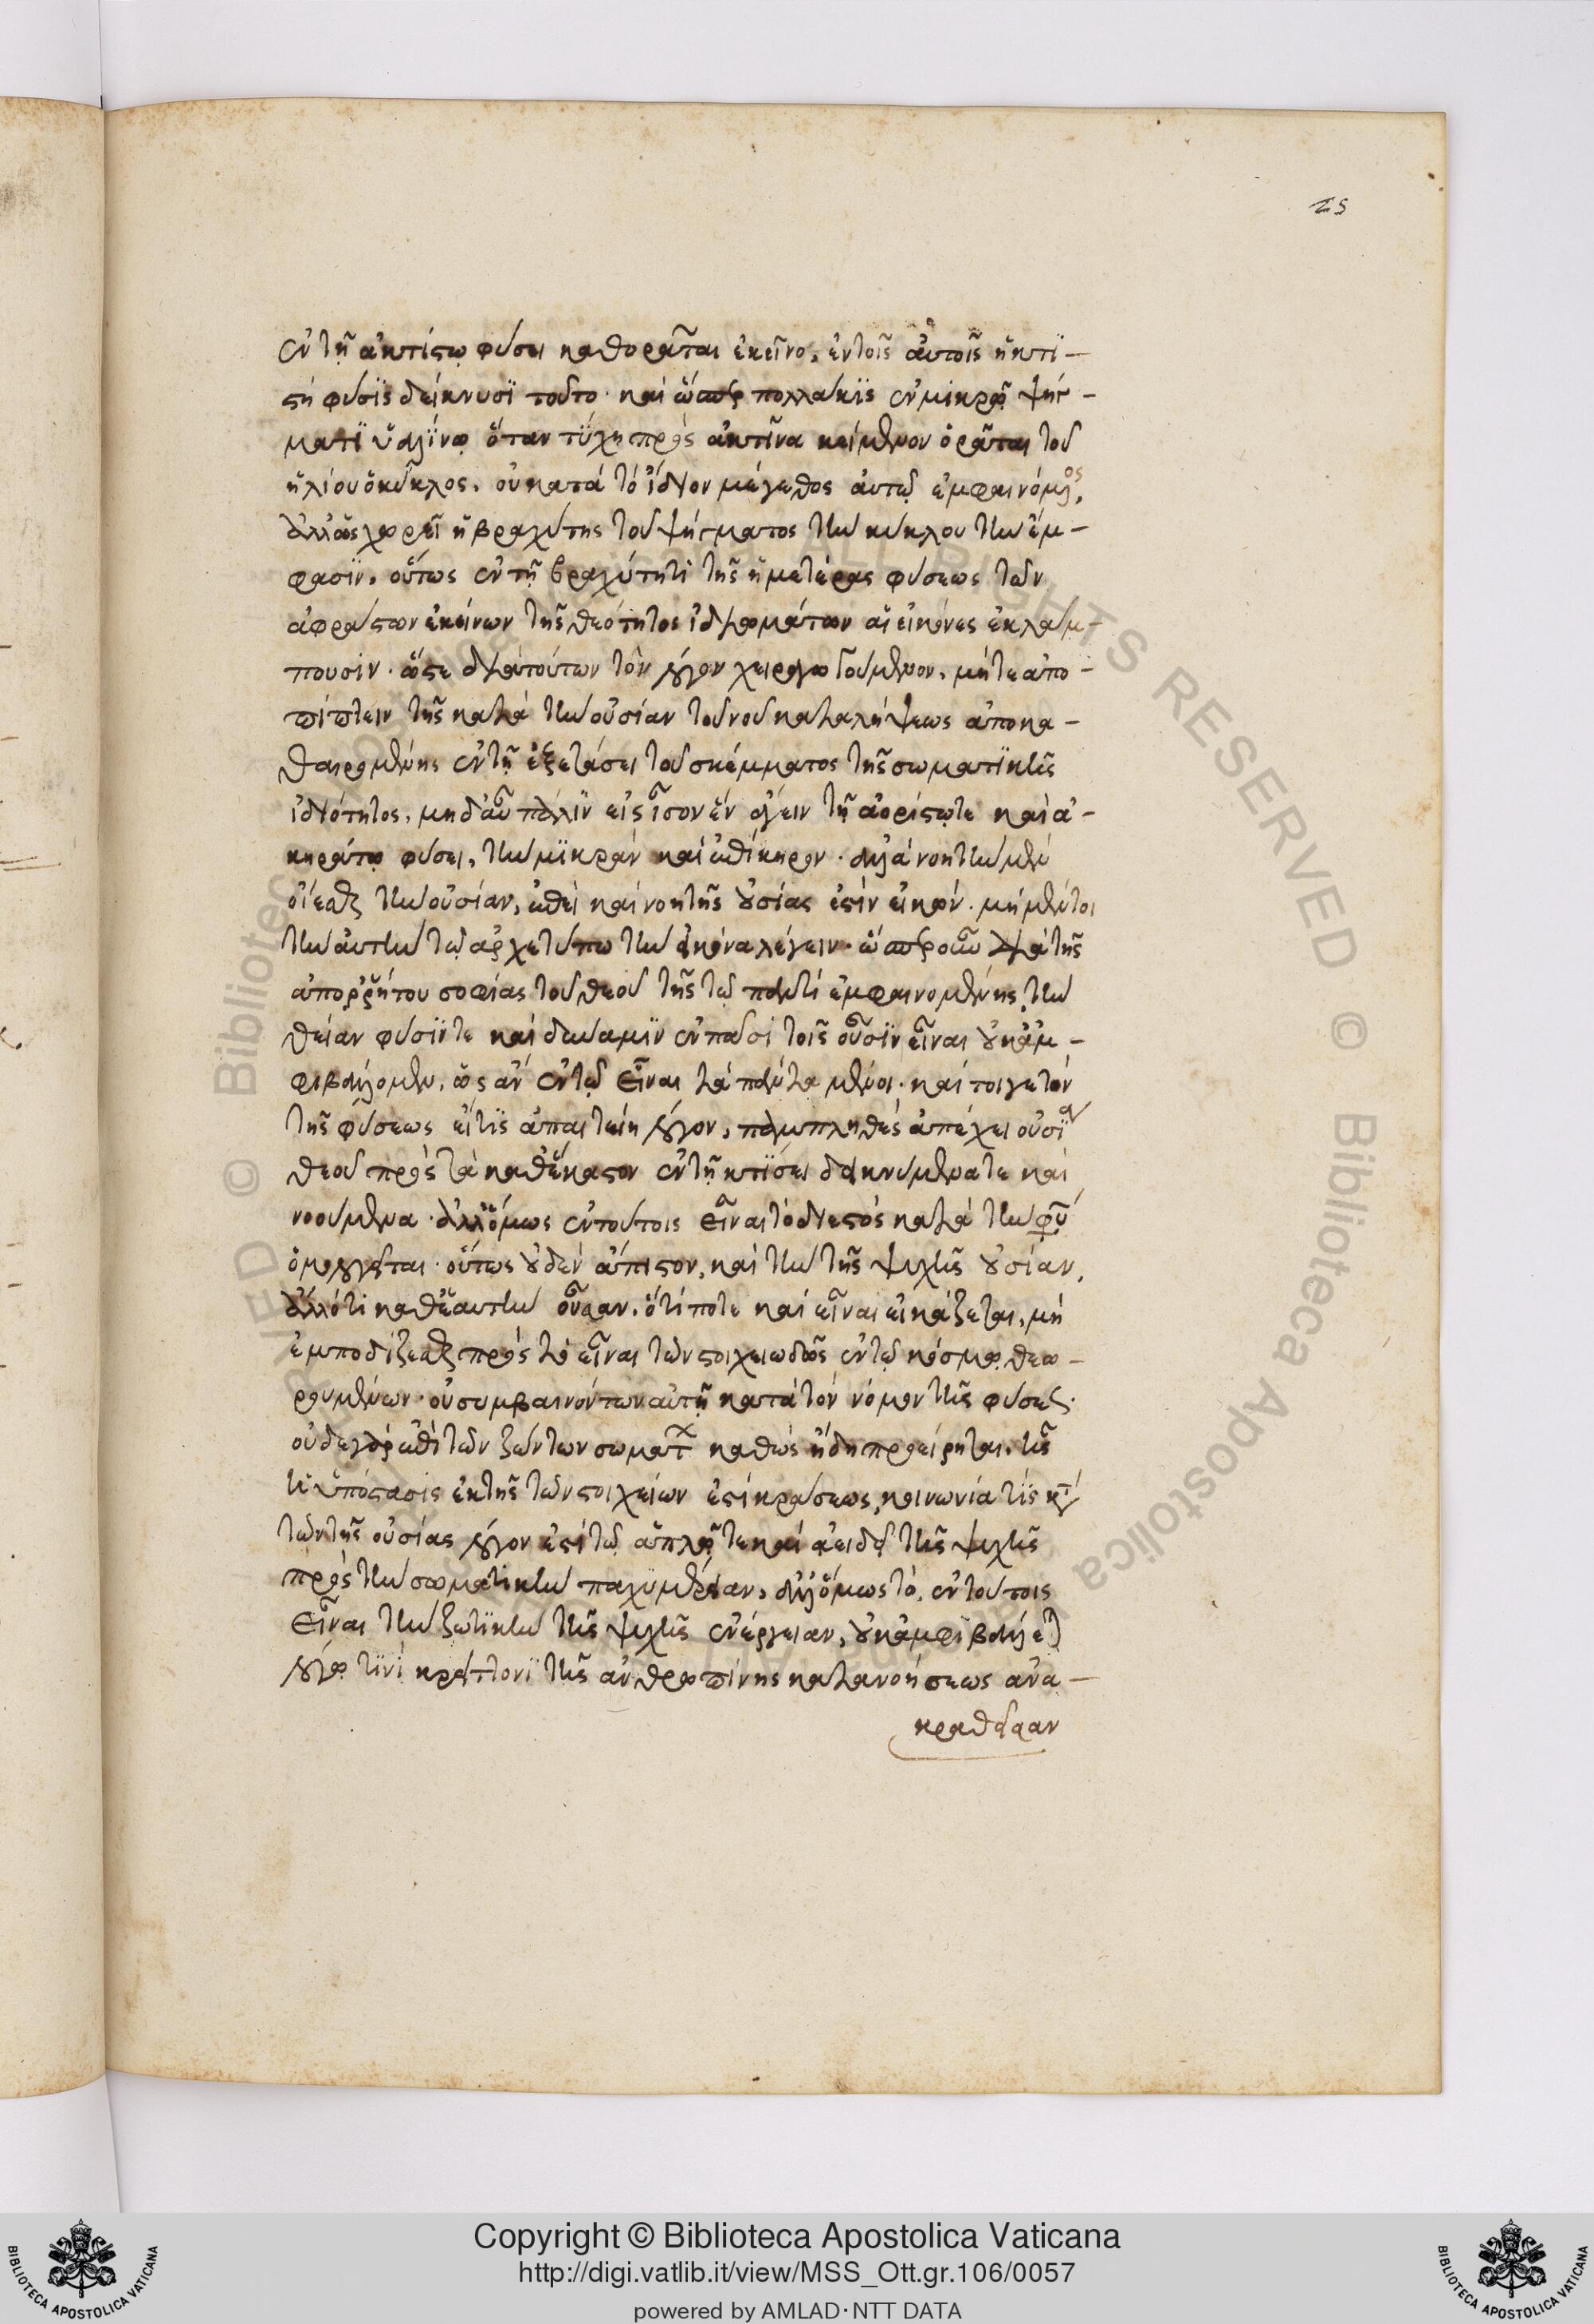 25
ἐν τῇ ἀκτίστῳ φύσει καθορᾶται ἐκεῖνο, ἐν τοῖς αὐτοῖς ἡ κτι-
στὴ φύσις δείκνυσι τοῦτο· καὶ ὥσπερ πολλάκις ἐν μικρῷ ψήγ-
ματι ὑαλίνῳ ὅταν τύχῃ πρὸς ἀκτῖνα κείμενον ὁρᾶται τοῦ
ἡλίου ὁ κύκλος, οὐ κατὰ τὸ ἴδιον μέγεθος αὐτῷ ἐμφαινόμενος,
ἀλλ' ὡς χωρεῖ ἡ βραχύτης τοῦ ψήγματος τὴν κύκλου τὴν ἔμ-
φασιν, οὕτως ἐν τῇ βραχύτητι τῆς ἡμετέρας φύσεως τῶν
ἀφράστων ἐκείνων τῆς θεότητος ἰδιωμάτων αἱ εἰκόνες ἐκλάμ-
πουσιν· ὥστε διὰ τούτων τὸν λόγον χειραγωγούμενον, μήτε ἀπο-
πίπτειν τῆς κατὰ τὴν οὐσίαν τοῦ νοῦ καταλήψεως ἀποκα-
θαιρομένης ἐν τῇ ἐξετάσει τοῦ σκέμματος τῆς σωματικῆς
ἰδιότητος, μηδ' αὖ πάλιν εἰς ἴσον ἓν ἄγειν τῇ ἀορίστῳ τε καὶ ἀ-
κηράτῳ φύσει, τὴν μικρὰν καὶ ἐπίκηρον· ἀλλὰ νοητὴν μὲν
οἴεσθαι τὴν οὐσίαν, ἐπεὶ καὶ νοητῆς οὐσίας ἐστὶν εἰκών· μὴ μέντοι
τὴν αὐτὴν τῷ ἀρχετύπῳ τὴν εἰκόνα λέγειν· ὥσπερ οὖν διὰ τῆς
ἀπορρήτου σοφίας τοῦ θεοῦ τῆς τῷ παντὶ ἐμφαινομένης, τὴν
θείαν φύσιν τε καὶ δύναμιν ἐν πᾶσι τοῖς οὖσιν εἶναι οὐκ ἀμ-
φιβάλλομεν, ὡς ἂν ἐν τῷ εἶναι τὰ πάντα μένοι· καίτοιγε τὸν
τῆς φύσεως εἴ τις ἀπαιτείη λόγον, παμπληθὲς ἀπέχει οὐσία
θεοῦ πρὸς τὰ καθ' ἕκαστον ἐν τῇ κτίσει δεικνύμενά τε καὶ
νοούμενα· ἀλλ' ὅμως ἐν τούτοις εἶναι τὸ διεστὸς κατὰ τὴν φύσιν
ὁμολογεῖται· οὕτως οὐδὲν ἄπιστον, καὶ τὴν τῆς ψυχῆς οὐσίαν,
ἄλλό τι καθ' ἑαυτὴν οὖσαν, ὅτί ποτε καὶ εἶναι εἰκάζεται, μὴ
ἐμποδίζεσθαι πρὸς τὸ εἶναι τῶν στοιχειωδῶς ἐν τῷ κόσμῳ θεω-
ρουμένων· οὐ συμβαινόντων αὐτῇ κατὰ τὸν νόμον τῆς φύσεως·
οὐδὲ γὰρ ἐπὶ τῶν ζώντων σωμάτων καθὼς ἤδη προείρηται, τῆς
ἡ ὑπόστασις ἐκ τῆς τῶν στοιχείων ἐστὶ κράσεως, κοινωνία τίς κατὰ
τῶν τῆς οὐσίας λόγον ἐστὶ τῷ ἁπλῷ τε καὶ ἀειδεῖ τῆς ψυχῆς
πρὸς τὴν σωματικὴν παχυμέρειαν, ἀλλ' ὅμως τὸ, ἐν τούτοις
εἶναι τὴν ζωτικὴν τῆς ψυχῆς ἐνέργειαν, οὐκ ἀμφιβάλλεται
λόγῳ τινὶ κρείττονι τῆς ἀνθρωπίνης κατανοήσεως ἀνα-
κραθεῖσαν
Copyright © Biblioteca Apostolica Vaticana
http://digi.vatlib.it/view/MSS_Ott.gr.106/0057
powered by AMLAD·NTT DATA